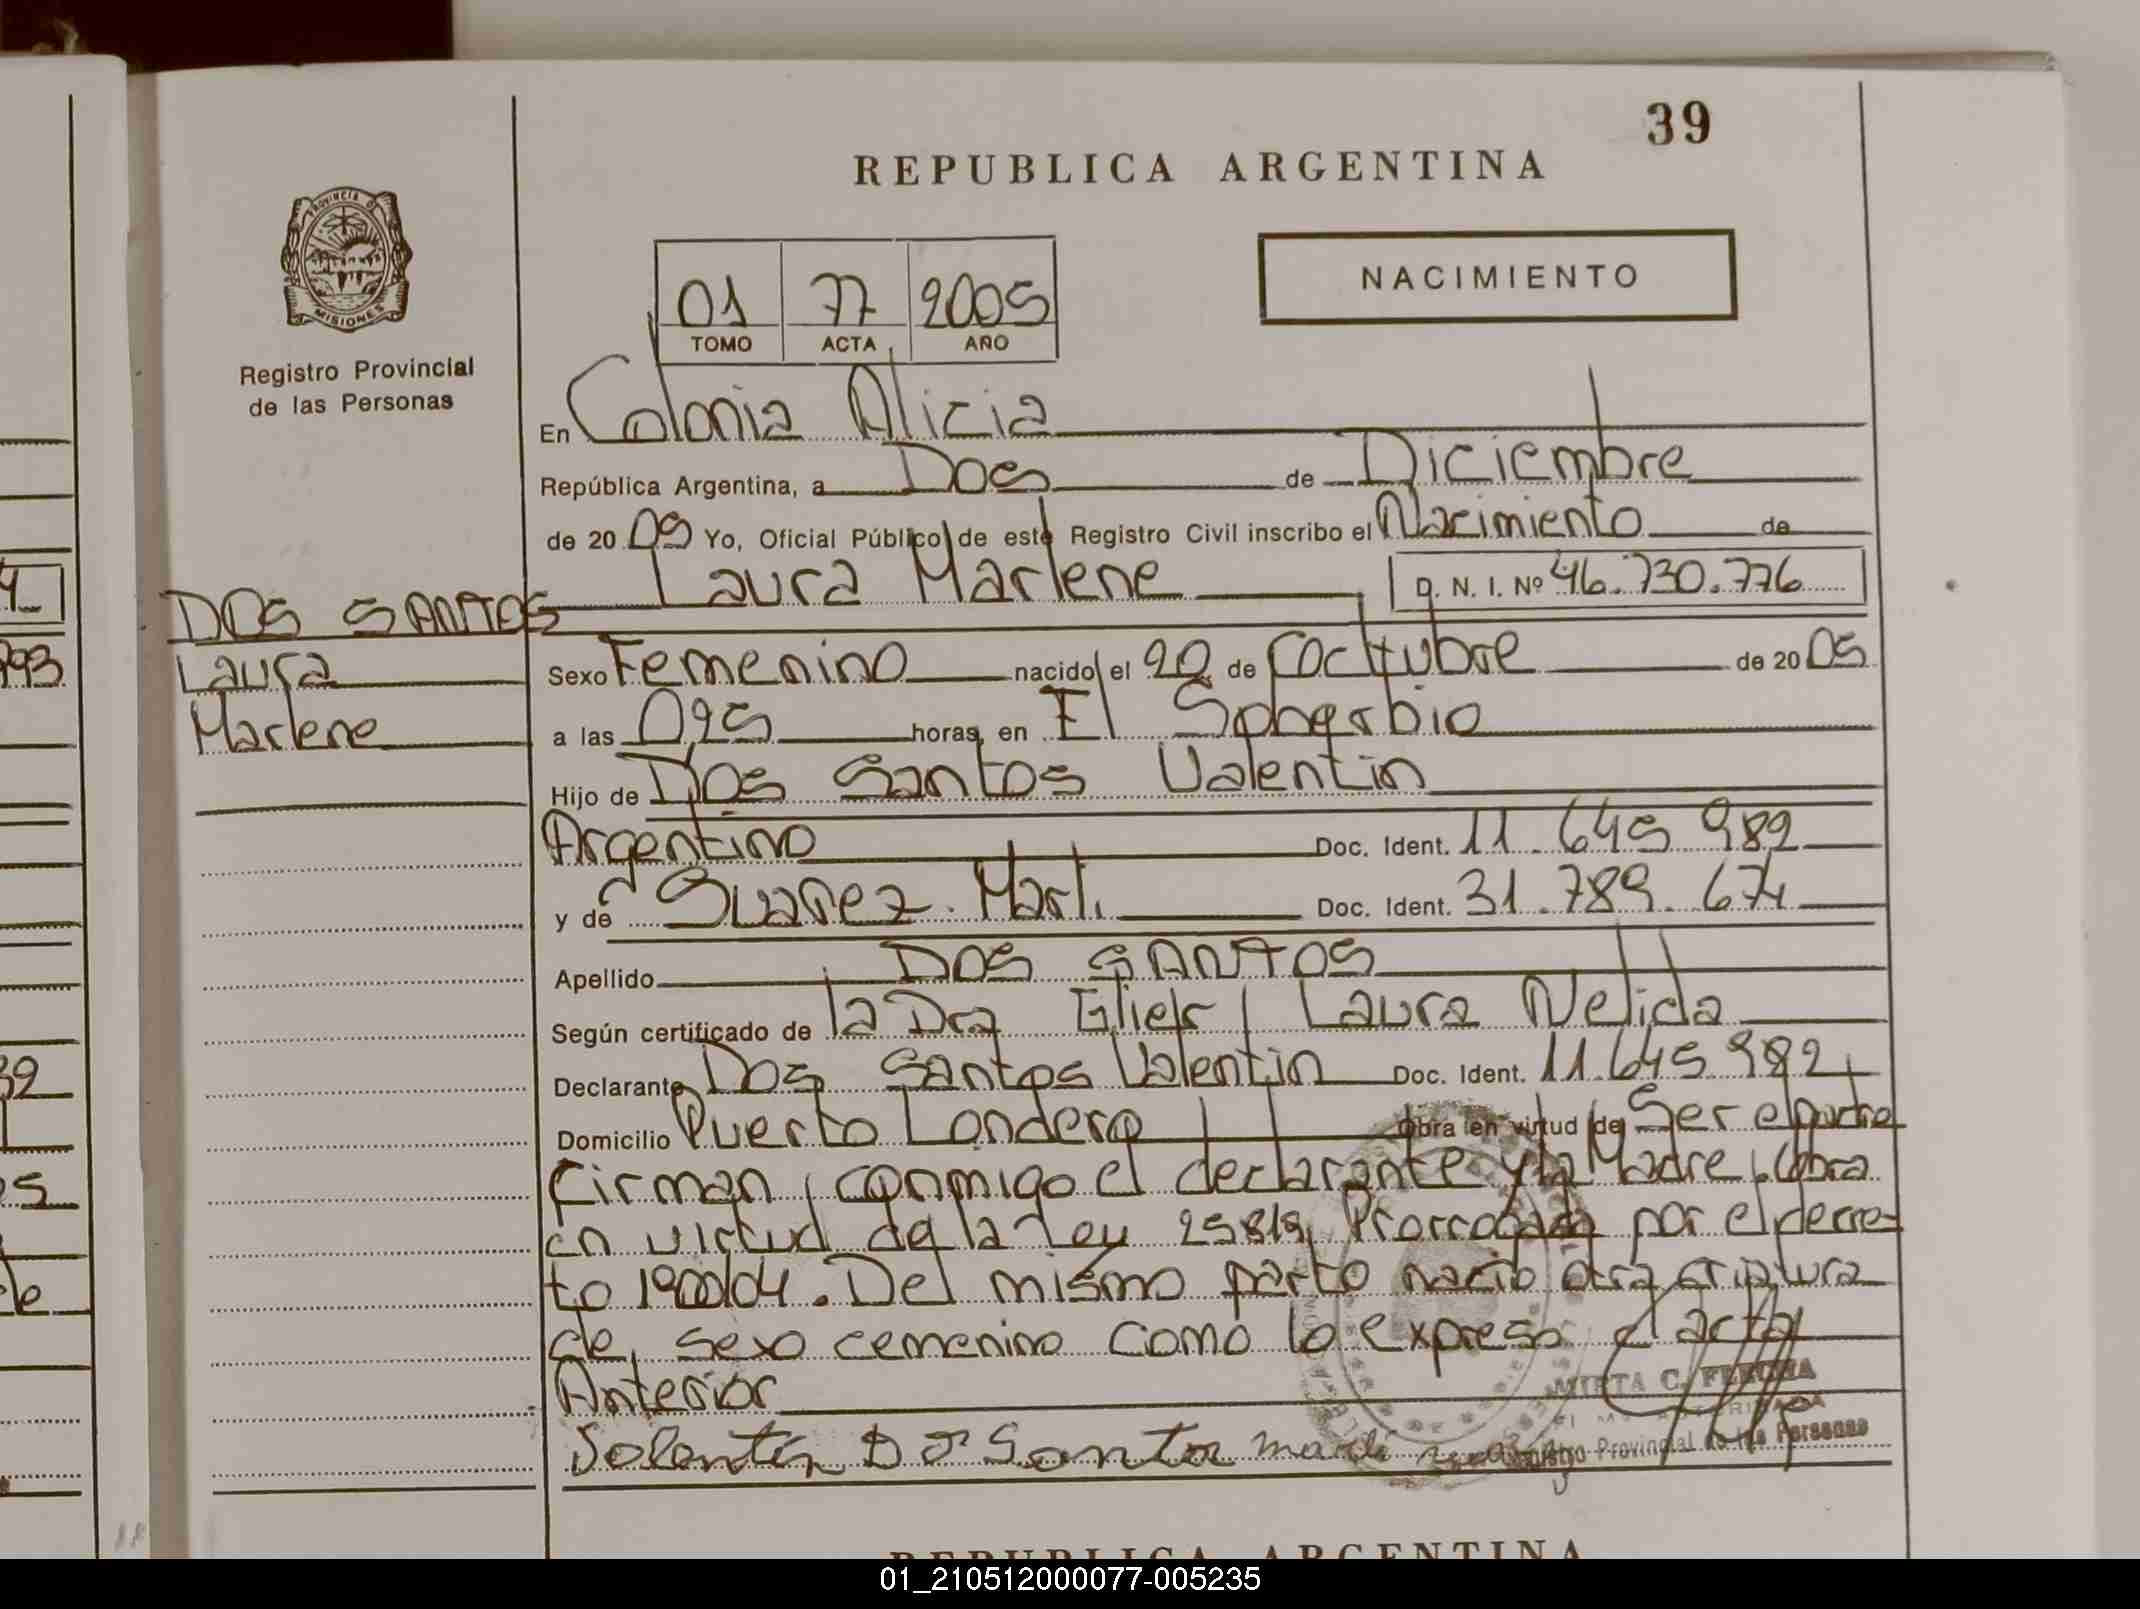 39
REPUBLICA ARGENTINA
PROVINCIA D
MISIONES
Registro Provincial
de las Personas
01 77 2005
TOMO ACTA AÑO
NACIMIENTO
En Colonia Alicia
República Argentina, a Dos de Diciembre
de 20 05 Yo, Oficial Público de este Registro Civil inscribo el Nacimiento de
Laura Marlene D. N. I. Nº 46.730.776
DOS SANTOS
Laura
Marlene
Sexo Femenino nacido el 20 de Octubre de 20 05
a las 095 horas, en El Soberbio
Hijo de Dos Santos Valentin
Argentino Doc. Ident. 11.645 982
y de Suarez Marl. Doc. Ident. 31.789.674
Apellido DOS SANTOS
Según certificado de la Dra Laura Nelida
Declarante Dos Santos Valentin Doc. Ident. 11.645 982
Domicilio Puerto Londero Obra en virtud de Ser el padre
Firman conmigo el declarante y la Madre, Obra
en virtud de la Ley 25819 Prorrogada por el decre-
to 1900/04. Del mismo parto nacio otra criatura
de sexo cemenino como lo expreso el acta
Anterior
MIRTA C.
Registro Provincial de las Personas
REPUBLICA ARGENTINA
01_210512000077-005235